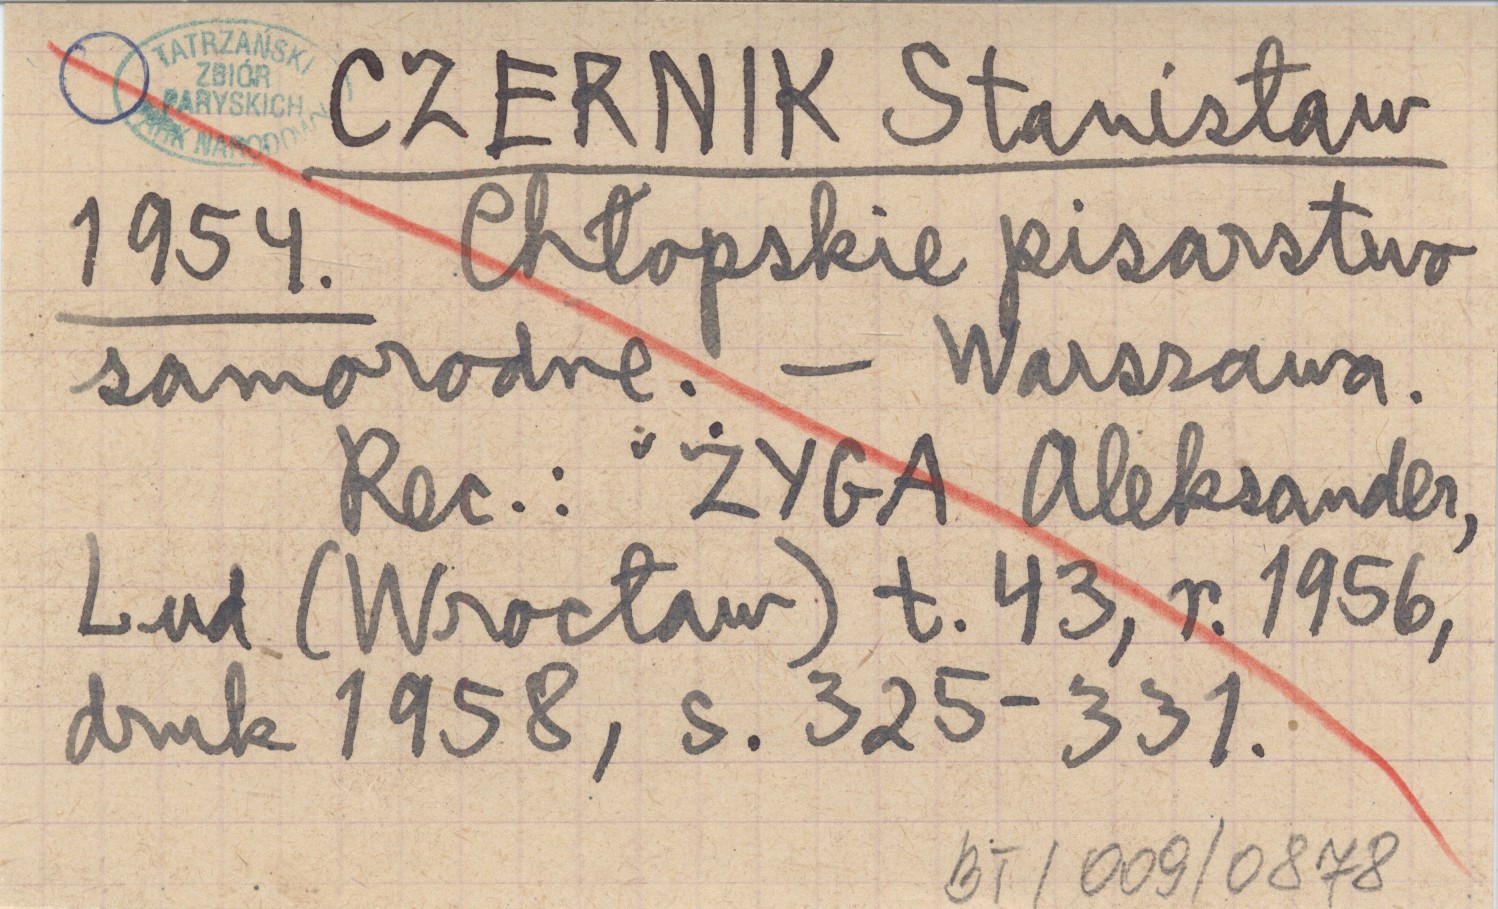 TATRZAŃSKI
ZBIÓR
PARYSKICH
PARK NARODOWY
CZERNIK Stanisław
1954. Chłopskie pisarstwo
samorodne. — Warszawa.
Rec.: ŻYGA Aleksander,
Lud (Wrocław) t. 43, r. 1956,
druk 1958, s. 325-331.
BT/009/0878